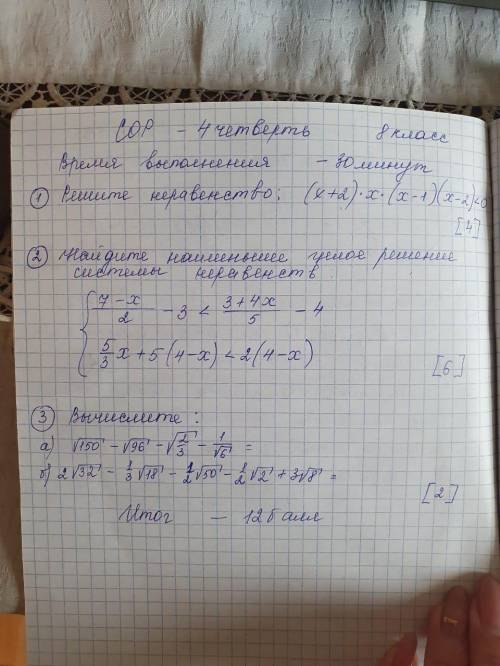 СОР - 4 четверть 8 класс
Время выполнения - 30 минут
① Решите неравенство: (x+2)·x·(x-1)(x-2)<0
[4]
② Найдите наименьшее целое решение
системы неравенств
{ (7-x)/2 - 3 < (3+4x)/5 - 4
5/3 x + 5(4-x) < 2(4-x)
[6]
③ Вычислите:
а) √150 - √96 - √(2/3) - 1/√6 =
б) 2√32 - 1/3 √18 - 1/2 √50 - 1/2 √2 + 3√8 =
[2]
Итог - 12 балл